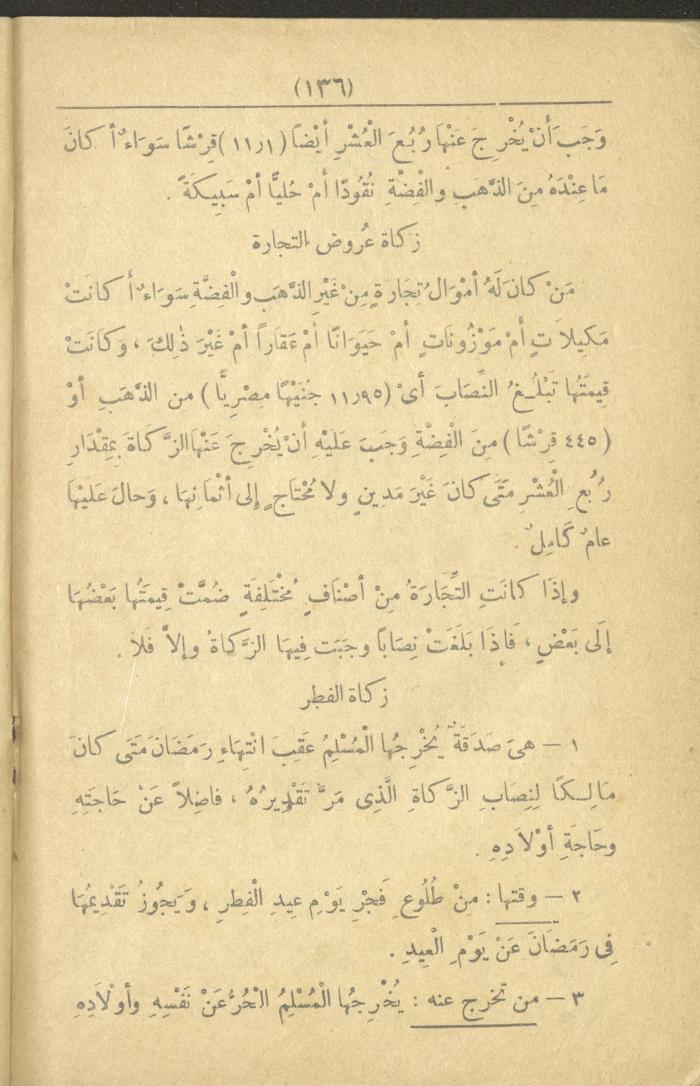 (١٣٦)
وَجَبَ أَنْ يُخْرِجَ عَنْهَا رُبُعَ الْعُشْرِ أَيْضًا (١١٫١) قِرْشًا سَوَاءٌ أَكَانَ
مَا عِنْدَهُ مِنَ الذَّهَبِ وَالْفِضَّةِ نُقُودًا أَمْ حُلِيًّا أَمْ سَبِيكَةً .
زكاة عُروض التجارة
مَنْ كَانَ لَهُ أَمْوَالُ تِجَارَةٍ مِنْ غَيْرِ الذَّهَبِ وَالْفِضَّةِ سَوَاءٌ أَكَانَتْ
مَكِيلَاتٍ أَمْ مَوْزُونَاتٍ أَمْ حَيَوَانًا أَمْ عَقَاراً أَمْ غَيْرَ ذٰلِكَ ، وَكَانَتْ
قِيمَتُهَا تَبْلُغُ النِّصَابَ أَىْ (١١٫٩٥ جُنَيْهًا مِصْرِيًّا) من الذَّهَبِ أَوْ
(٤٤٥ قِرْشًا) مِنَ الْفِضَّةِ وَجَبَ عَلَيْهِ أَنْ يُخْرِجَ عَنْهَا الزَّكَاةَ بِمِقْدَارِ
رُبُعِ الْعُشْرِ مَتَى كَانَ غَيْرَ مَدِينٍ وَلَا مُحْتَاجٍ إِلَى أَثْمَانِهَا ، وَحَالَ عَلَيْهَا
عامٌ كَامِلٌ .
وَإِذَا كَانَتِ التِّجَارَةُ مِنْ أَصْنَافٍ مُخْتَلِفَةٍ ضُمَّتْ قِيمَتُهَا بَعْضُهَا
إِلَى بَعْضٍ ، فَإِذَا بَلَغَتْ نِصَاباً وَجَبَت فِيهَا الزَّكَاةُ وَإِلاَّ فَلَا .
زكاة الفطر
١ — هِىَ صَدَقَةٌ يُخْرِجُهَا الْمُسْلِمُ عَقِبَ انْتِهَاءِ رَمَضَانَ مَتَى كَانَ
مَالِكًا لِنِصَابِ الزَّكَاةِ الَّذِى مَرَّ تَقْدِيرُهُ ، فَاضِلاً عَنْ حَاجَتِهِ
وَحَاجَةِ أَوْلَادِهِ .
٢ — وقتها : مِنْ طُلُوعِ فَجْرِ يَوْمِ عِيدِ الْفِطْرِ ، وَيَجُوزُ تَقْدِيمُهَا
فِى رَمَضَانَ عَنْ يَوْمِ الْعِيدِ .
٣ — من تخرج عنه : يُخْرِجُهَا الْمُسْلِمُ الْحُرُّ عَنْ نَفْسِهِ وَأَوْلَادِهِ